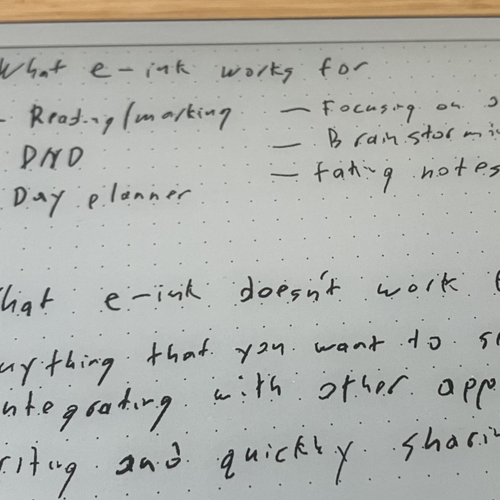 What e-ink works for
- Reading/marking
DND
Day planner
- Focusing on
- Brainstormi
- taking notes
hat e-ink doesn't work
ything that you want to s
ntegrating with other app
riting and quickly sharin